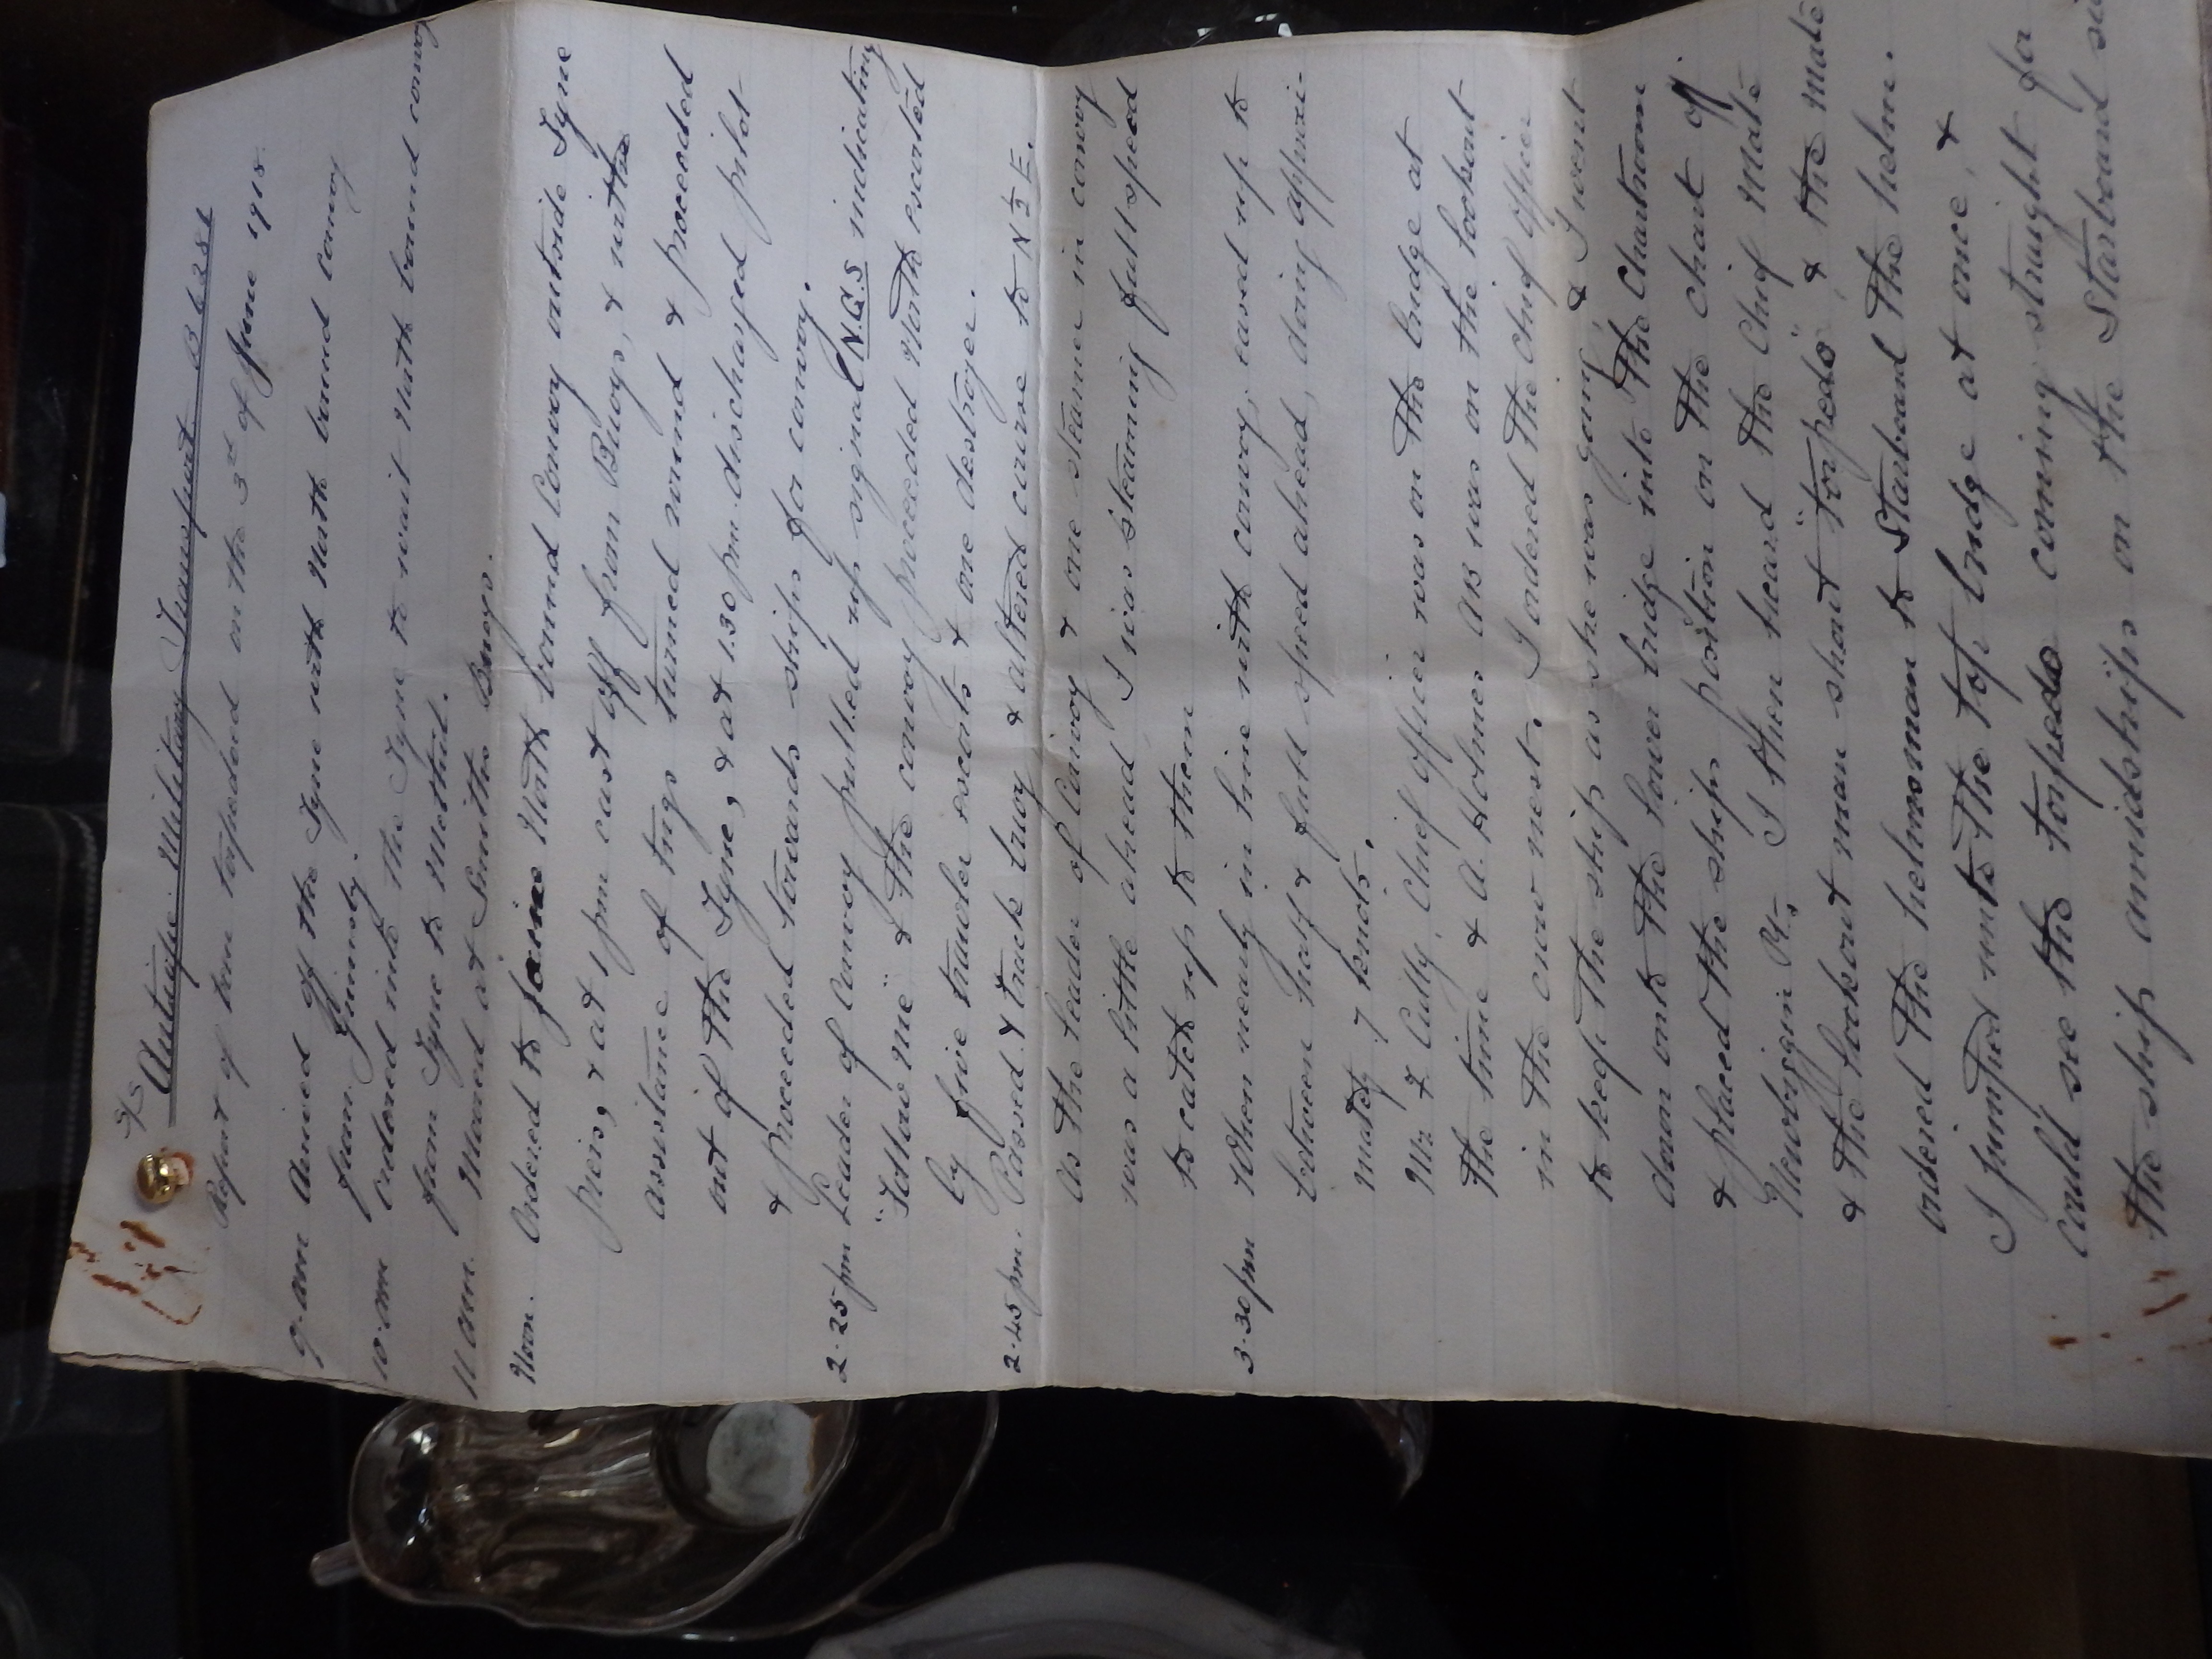 S/S
Antiope Military Transport B 6381
Report of been torpedoed on the 3rd of June 1918.
9 am Arrived off the Tyne with North bound convoy
from Grimsby.
10 am Ordered into the Tyne to wait North bound convoy
from Tyne to Methil.
11 am. Moored at Smiths Buoys.
Noon. Ordered to joine North bound Convoy outside Tyne
piers, & at 1 pm cast off from Buoys, & with the
assistance of tugs turned round & proceeded
out of the Tyne, & at 1.30 pm discharged pilot
& proceeded towards ships for convoy.
2-25 pm Leader of Convoy pulled up signal N.G.S indicating
"Follow me" & the convoy proceeded North escorted
by five trawler escorts & one destroyer.
2-45 pm. Passed Y track buoy & altered course to N ½ E.
As the leader of Convoy & one steamer in convoy
was a little ahead I was steaming full speed
to catch up to them
3-30 pm When nearly in line with convoy, eased up to
between half & full speed ahead, doing approxi-
mately 7 knots.
Mr F Cully, Chief Officer was on the bridge at
the time & A. Holmes AB was on the lookout
in the crow nest. I ordered the chief Officer
to keep the ship as she was going, & I went
down onto the lower bridge into the Chartroom
& placed the ships position on the chart off
Newbiggin Pt. I then heard the Chief Mate
& the lookout man shout "torpedo" & the mate
ordered the helmsman to Starboard the helm.
I jumped unto the top bridge at once, &
could see the torpedo coming straight for
the ship amidships on the Starboard